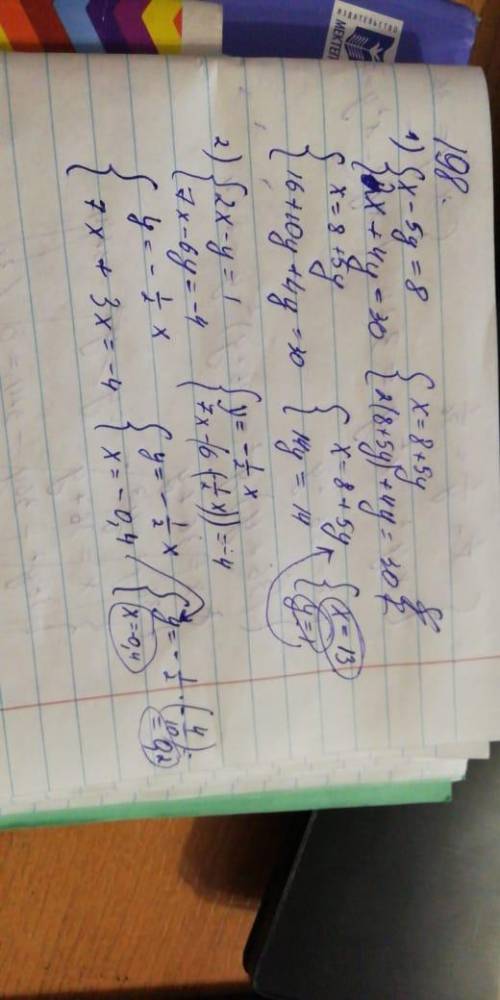 ИЗДАТЕЛЬСТВО
МЕКТЕП
198.
1) { x - 5y = 8
{ 2x + 4y = 30
{ x = 8 + 5y
{ 2(8 + 5y) + 4y = 30
{ x = 8 + 5y
{ 16 + 10y + 4y = 30
{ x = 8 + 5y
{ 14y = 14
{ x = 13
2) { 2x - y = 1
{ 7x - 6y = -4
{ y = - 1/2 x
{ 7x - (6 · (- 1/2 x)) = -4
{ y = - 1/2 x
{ 7x + 3x = -4
{ y = - 1/2 x
{ x = -0,4
{ y = - 1/2 · (- 4/10) = 0,2
{ x = -0,4